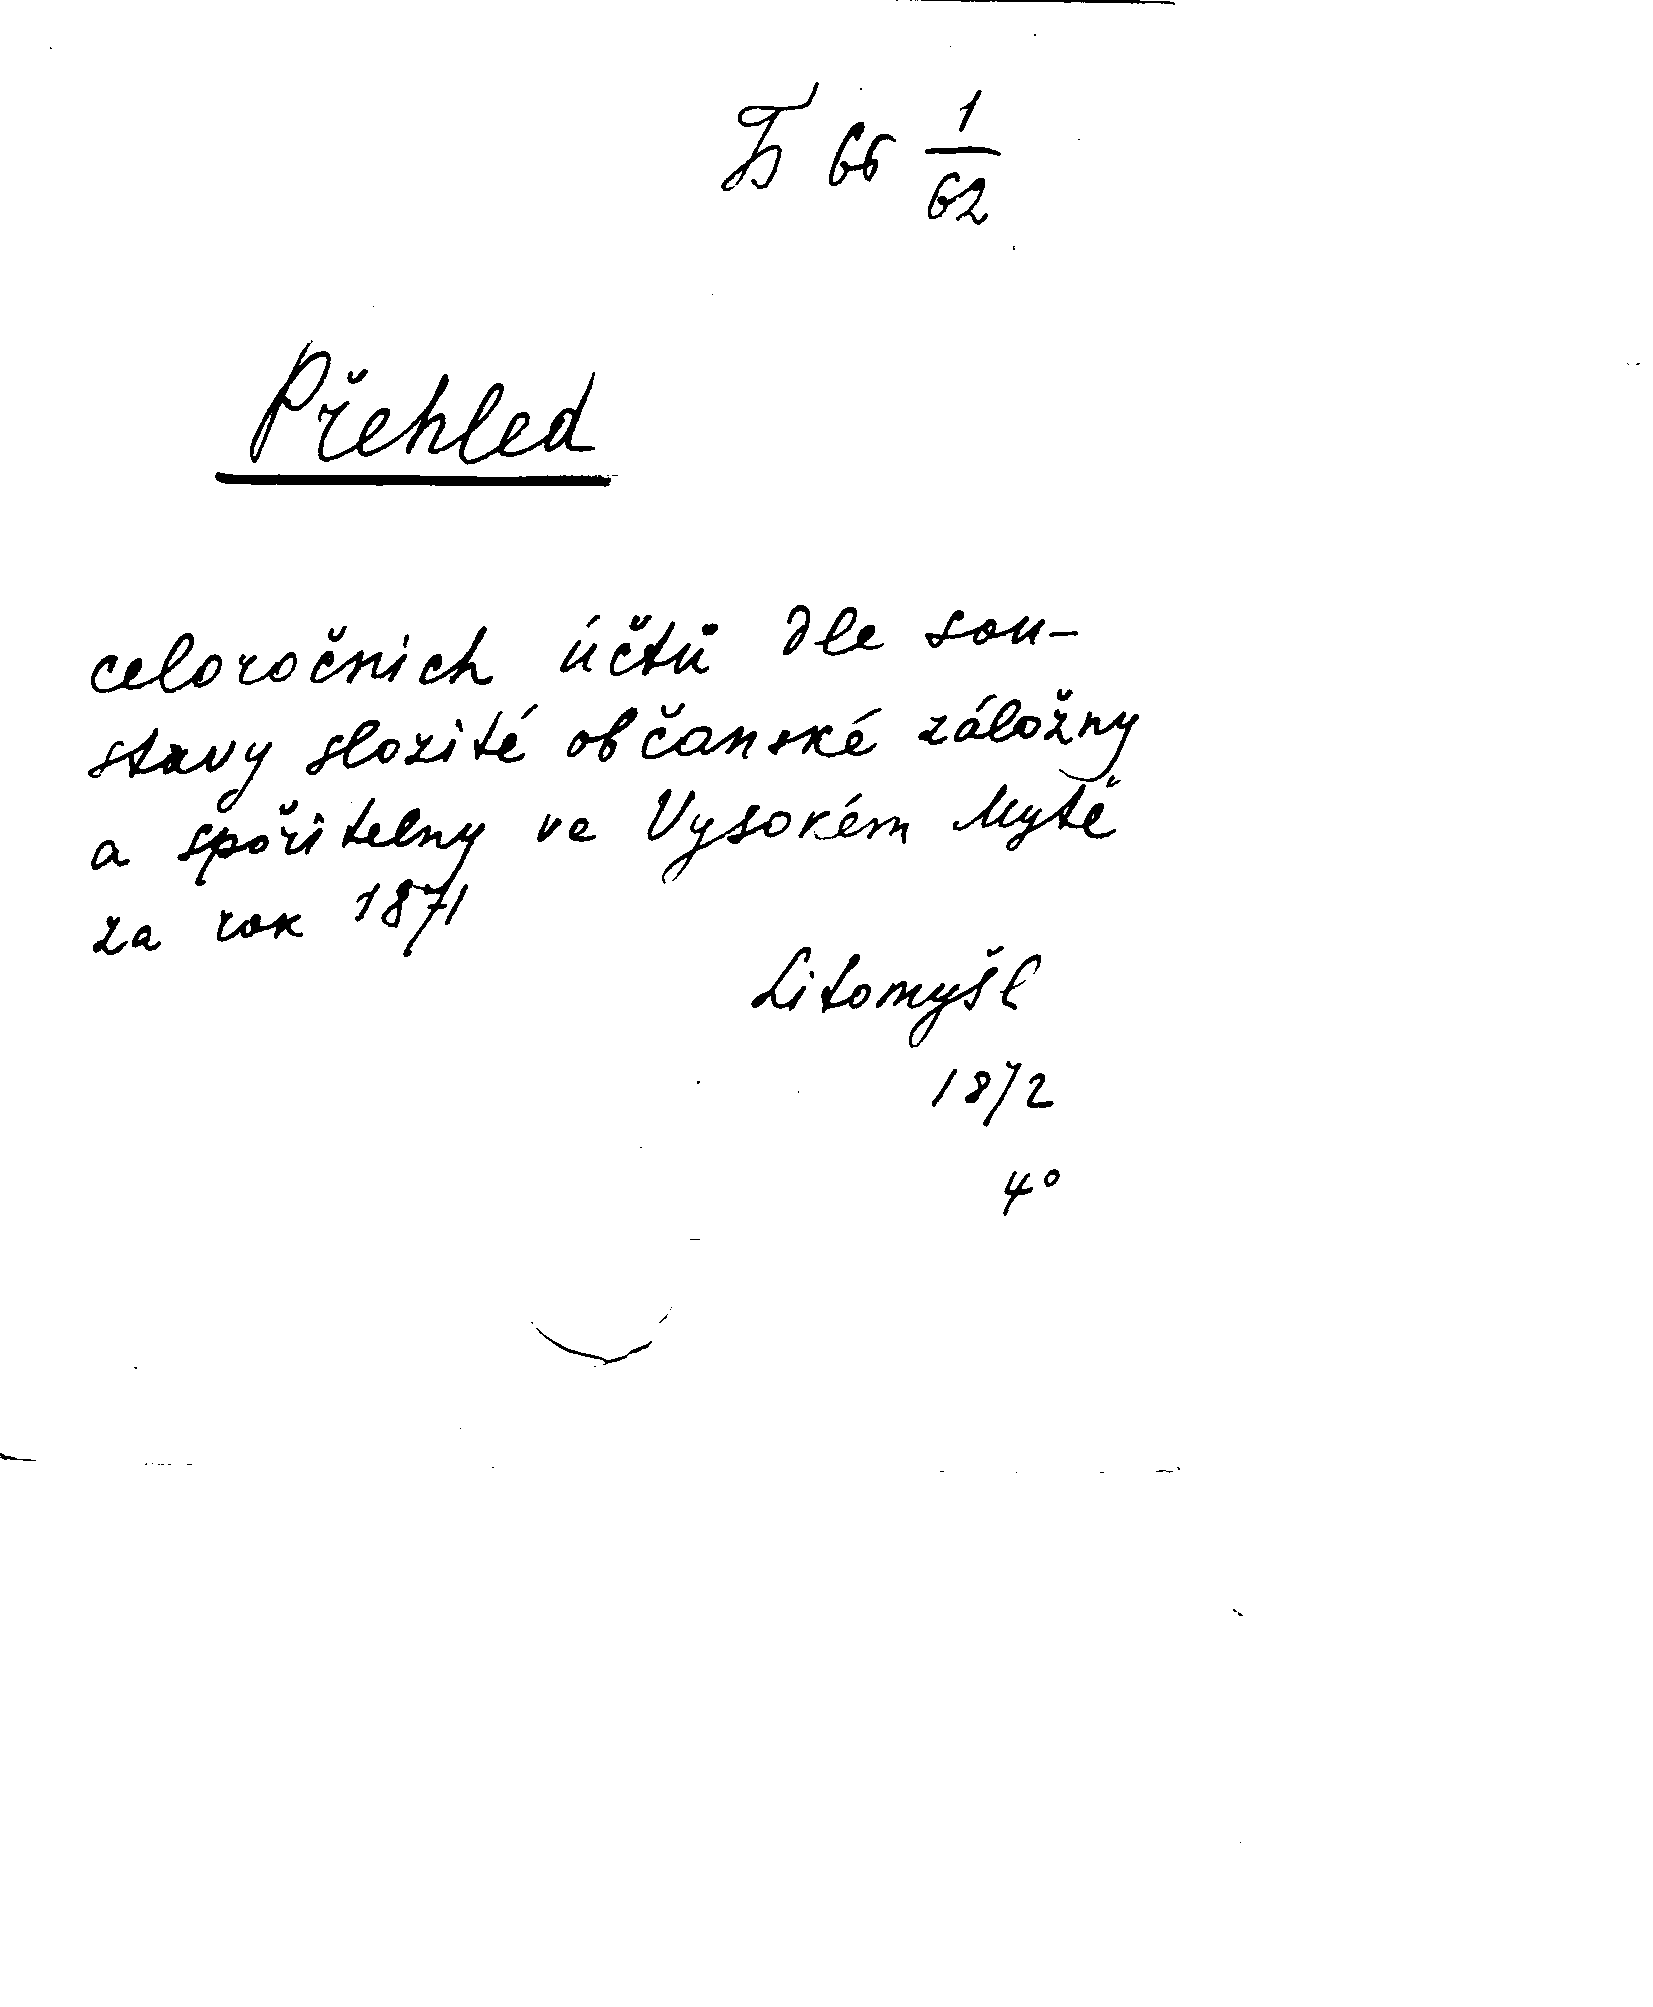 Б 66 1/62
Přehled
celoročnich účtů dle sou-
stavy slozité občanské záložny
a spořitelny ve Vysokém Mytě
za rok 1871
Litomyšl
1872
4°